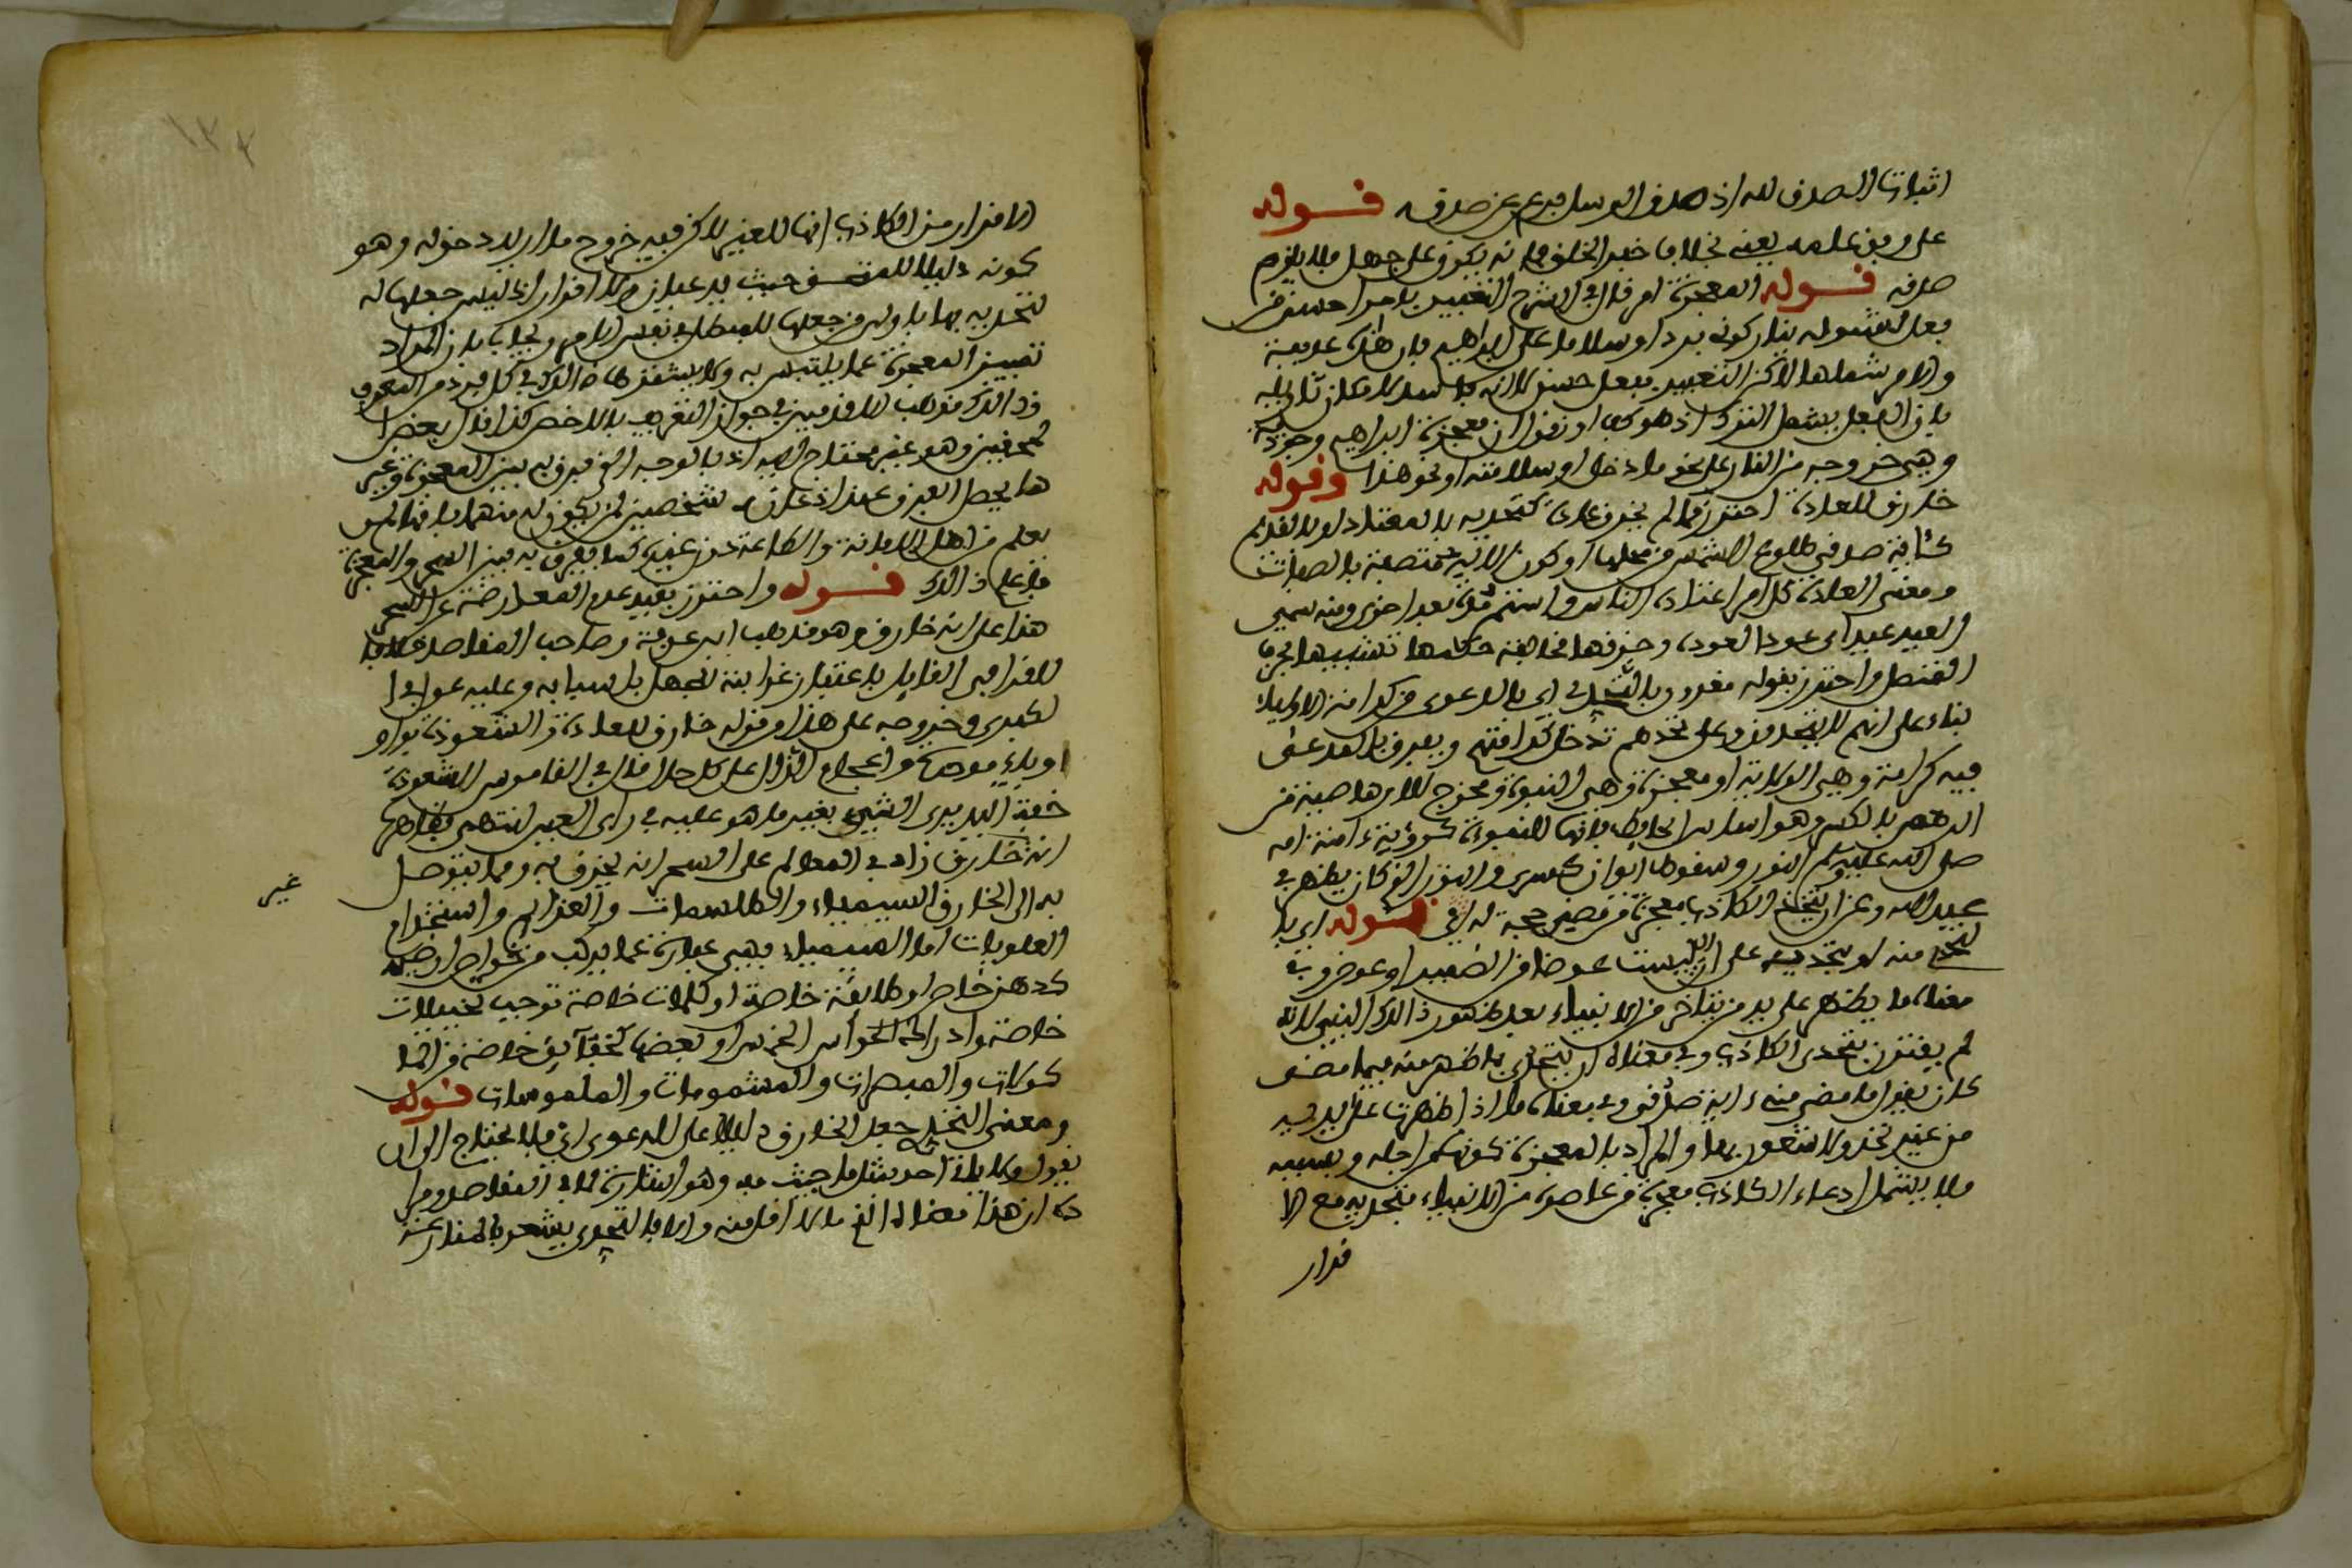 اثبات الصدق لله اذ صدق الرسل فرع عن صدقه قوله
على وفق علمه يعني بخلاف خبر الخلق فانه يكون على جهل فلا يلزم
صدقه قوله المعجزة امر قال في الشرح التعبير بامر احسن من
فعل لشموله نار كونه بردا وسلاما على ابراهيم فان هذه عدمية
والامر شملها لاكن التعبير بفعل حسن لانه
بان الفعل يشمل الترك اذ هو كف او نقول ان معجزة ابراهيم وجودية
وهي خروجه من النار على نحو ما دخل او سلامته او نحو هذا وقوله
خارق للعادة احترز مما لم يخرق عادة كتحديه بالمعتاد او بالقديم
كئاية صدقي طلوع الشمس من محلها او كون الاله متصفا بالصفات
ومعنى العادة كل امر اعتاده الناس واستمر مرة بعد اخرى ومنه سمي
العيد عيدا اي عودا لعوده وخرقها مخالفة حكمها تشبيها بخرق
المتصل واحترز بقوله مقرون بالتحدي اي بالدعوى من كرامة الاولياء
بناء على انهم لا يتحدون وعلى تحديهم تدخل كرامتهم ويعرف
فيه كرامة وهي الولاية او معجزة وهي النبوة ومخرج للارهاصية من
الرهص بالكسر وهو اساس الحايط فانها للنبوءة كرؤية ءامنة امه
صلى الله عليه وسلم النور وسقوط ايوان كسرى والنور الذي كان يظهر في
عبد الله وعن ان يتخذ الكاذب معجزة من مضى حجة له في قوله اي بان
يتحدى منه او بتحديه على ان ليست عوضا من الضمير او عوض وفي
معناه ما يظهر على يد من يتاخر من الانبياء بعد ظهور ذالك النبي لانه
لم يقترن بتحدي الكاذب وفي معناه ان يتحدى بما ظهر منه فيما مضى
كان يقول ما مضى مني ءاية صدقي وفي معناه ما اذا ظهرت على يديه
من غير تحد ولا شعور بها والمراد بالمعجزة كونها من اجله وبسببه
فلا يشمل ادعاء الكاذب معجزة من عاصره من الانبياء فتحديه مع الا
قرار
الاقرار من الكاذب انها للغير لاكن فيه خروج ما اريد دخوله وهو
كونه دليلا للمتنبئ حيث يدعيان ولا اقرار اذ ليس جعلها له
لتحديه بها باولى من جعلها للمبطل في نفس الامر ويجاب بان المراد
تمييز المعجزة عما يلتبس به ولا يشترط ذالك في كل فرد من المعرف
وذالك مذهب الاقدمين في جواز التعريف بالاخص كذا قال بعض ا
لمحققين وهو غير محتاج اليه اذ بالوجه الذي يفرق به بين المعجزة وغير
ها يحصل الفرق عند ادعاء شخصين
يعلم من اهل الامانة والطاعة دون غيره كما يفرق به بين السحر والمعجزة
فاعلم ذالك قوله واحترز بقيد عدم المعارضة عن السحر
هذا على انه خارق وهو مذهب ابن عرفة وصاحب المقاصد خلافا
للقرافي القايل باعتبار غرابته للجهل باسبابه وعليه عول في ا
لكبرى وخروجه على هذا من قوله خارق للعادة والشعوذة بواو
او باء موحدة واعجام الذال على كل حال قال في القاموس الشعوذة
خفة اليد يرى الشيء بغير ما هو عليه في راي العين انتهى وظاهرها
انه خارق زاد في المعالم على السحر انه يخرق به ومما يتوصل
به الى الخارق السيمياء والطلسمات والعزايم واستخدام
العلويات اما السيمياء فهي عبارة عما يركب من خواص ارضية
كدهن خاص او مايعة خاصة او كلمات خاصة توجب تخييلات
خاصة وادراك الحواس الخمس او بعضها لحقايق خاصة من الما
كولات والمبصرات والمشمومات والملموسات قوله
ومعنى التحدي جعل الخارق دليلا على الدعوى اي فلا يحتاج الى ان
يقول ولا ياتي احد بمثل ما جيت به وهو اشارة لما في المقاصد ومرا
ده ان هذا معناه الذي ما لا اقل منه والا فالتحدي يشعر بالمنازعة
غير
١٣٣